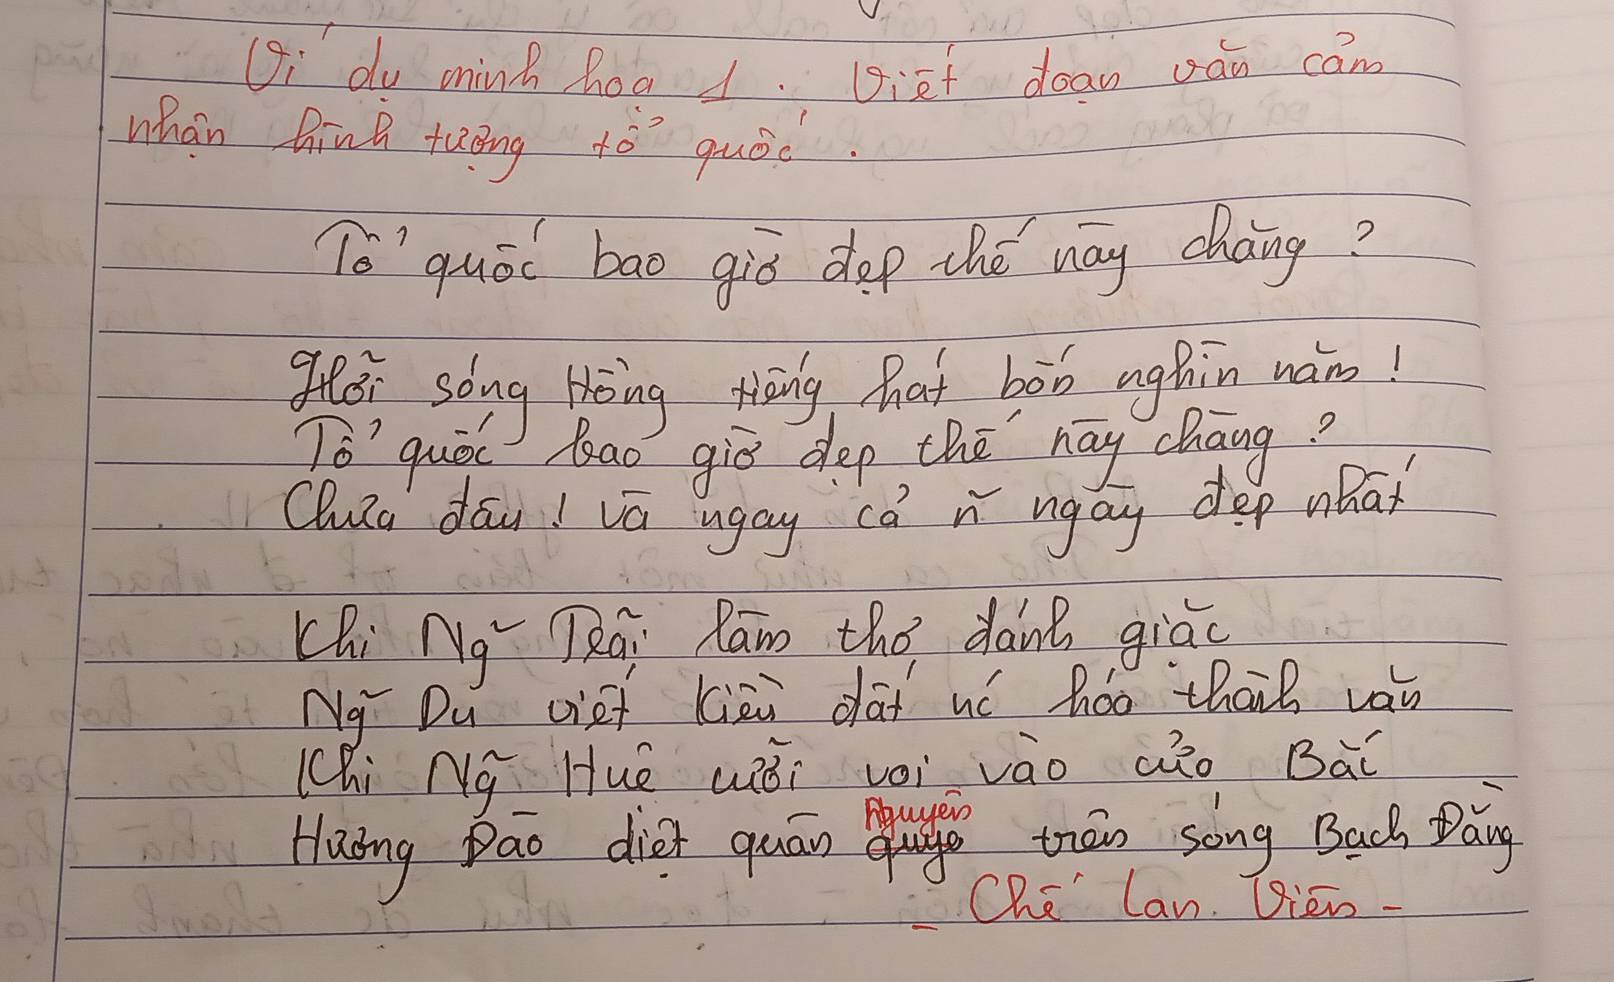 Ví dụ minh hoạ 1. Viết đoạn văn cảm
nhận hình tượng tổ quốc.
Tổ quốc bao giờ đẹp thế này chăng?
Hỡi sông Hồng tiếng hát bốn nghìn năm!
Tổ quốc bao giờ đẹp thế này chăng?
Chưa đâu! và ngay cả ~ ngày đẹp nhất
Khi Ng~ Trãi làm thơ đánh giặc
Ng~ Du viết Kiều đất nc hóa thành văn
Khi Ng~ Huệ cưỡi voi vào cửa Bắc
Hưng Đạo diệt quân Nguyên trên sông Bạch Đằng
- Chế Lan Viên -